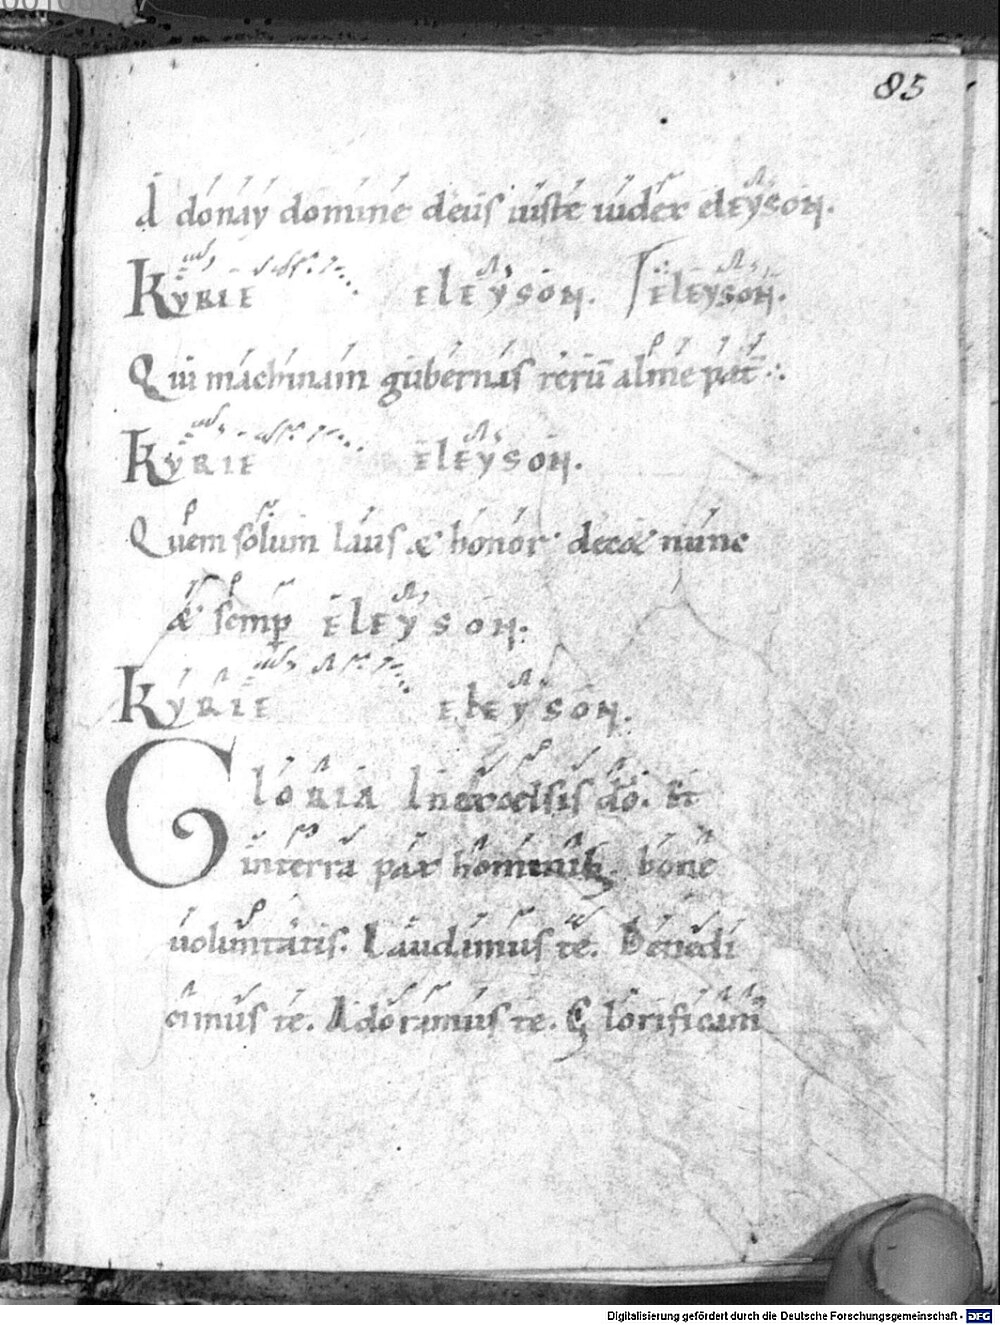 85
A donay domine deus iuste iudex eleyson.
Kyrie eleyson. eleyson.
Qui machinam gubernas rerū alme pat̄
Kyrie eleyson.
Quem solum laus & honor decet nunc
& semp̱ eleyson.
Kyrie eleyson.
Gloria Inexcelsis dō. Et
interra pax hominib; bone
uoluntatis. Laudamus te. Benedi
cimus te. Adoramus te. Glorificam
Digitalisierung gefördert durch die Deutsche Forschungsgemeinschaft - DFG